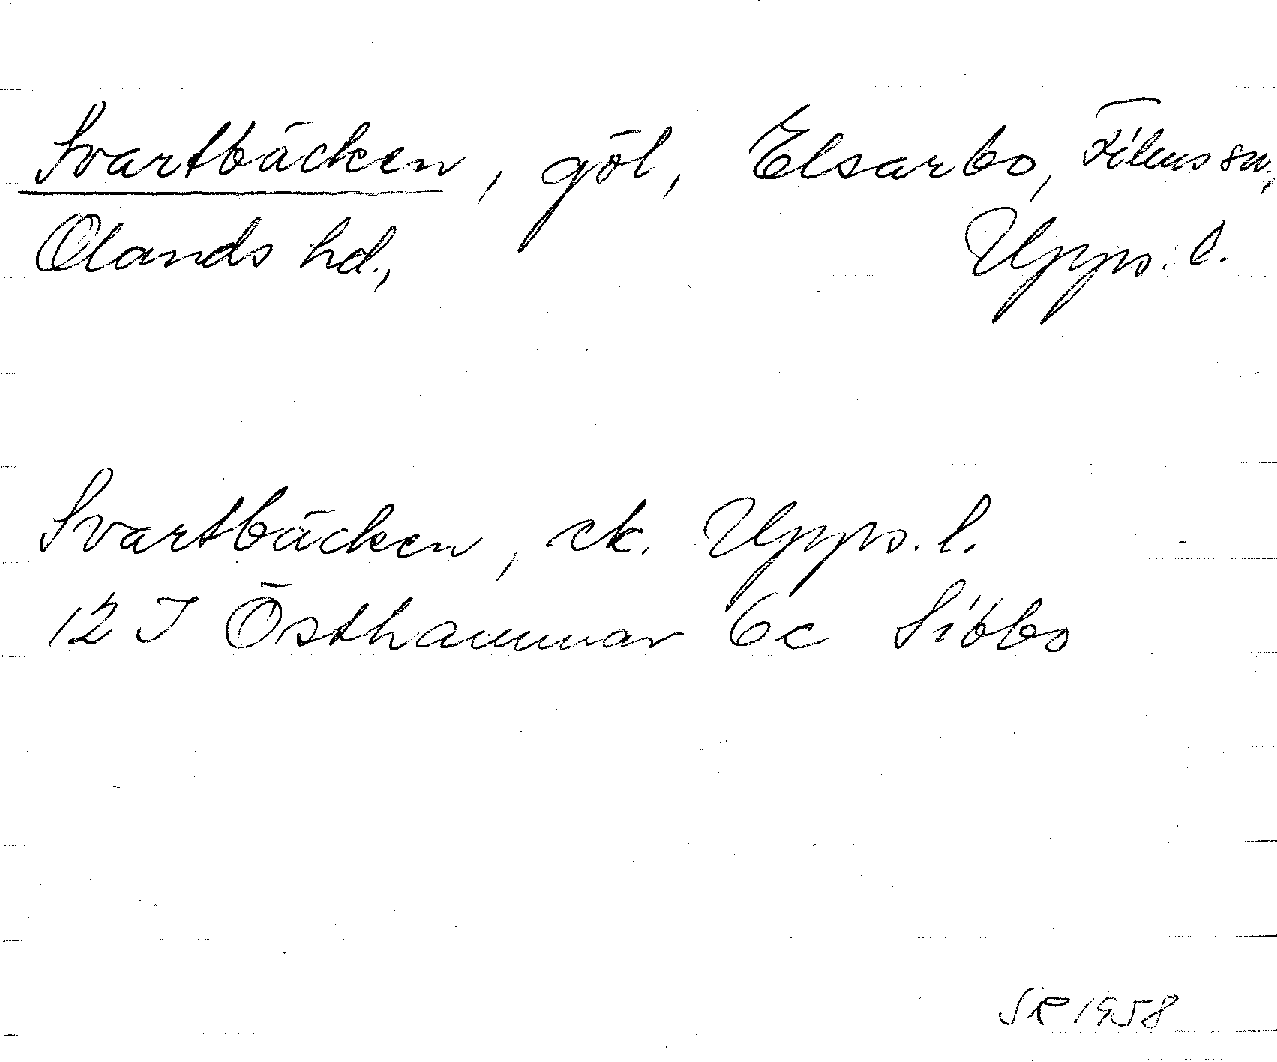 Svartbäcken, göl, Elsarbo, Films sn,
Olands hd., Upps. l.
Svartbäcken, ek. Upps. l.
12 I Östhammar 6c Sibbo
SR 1958